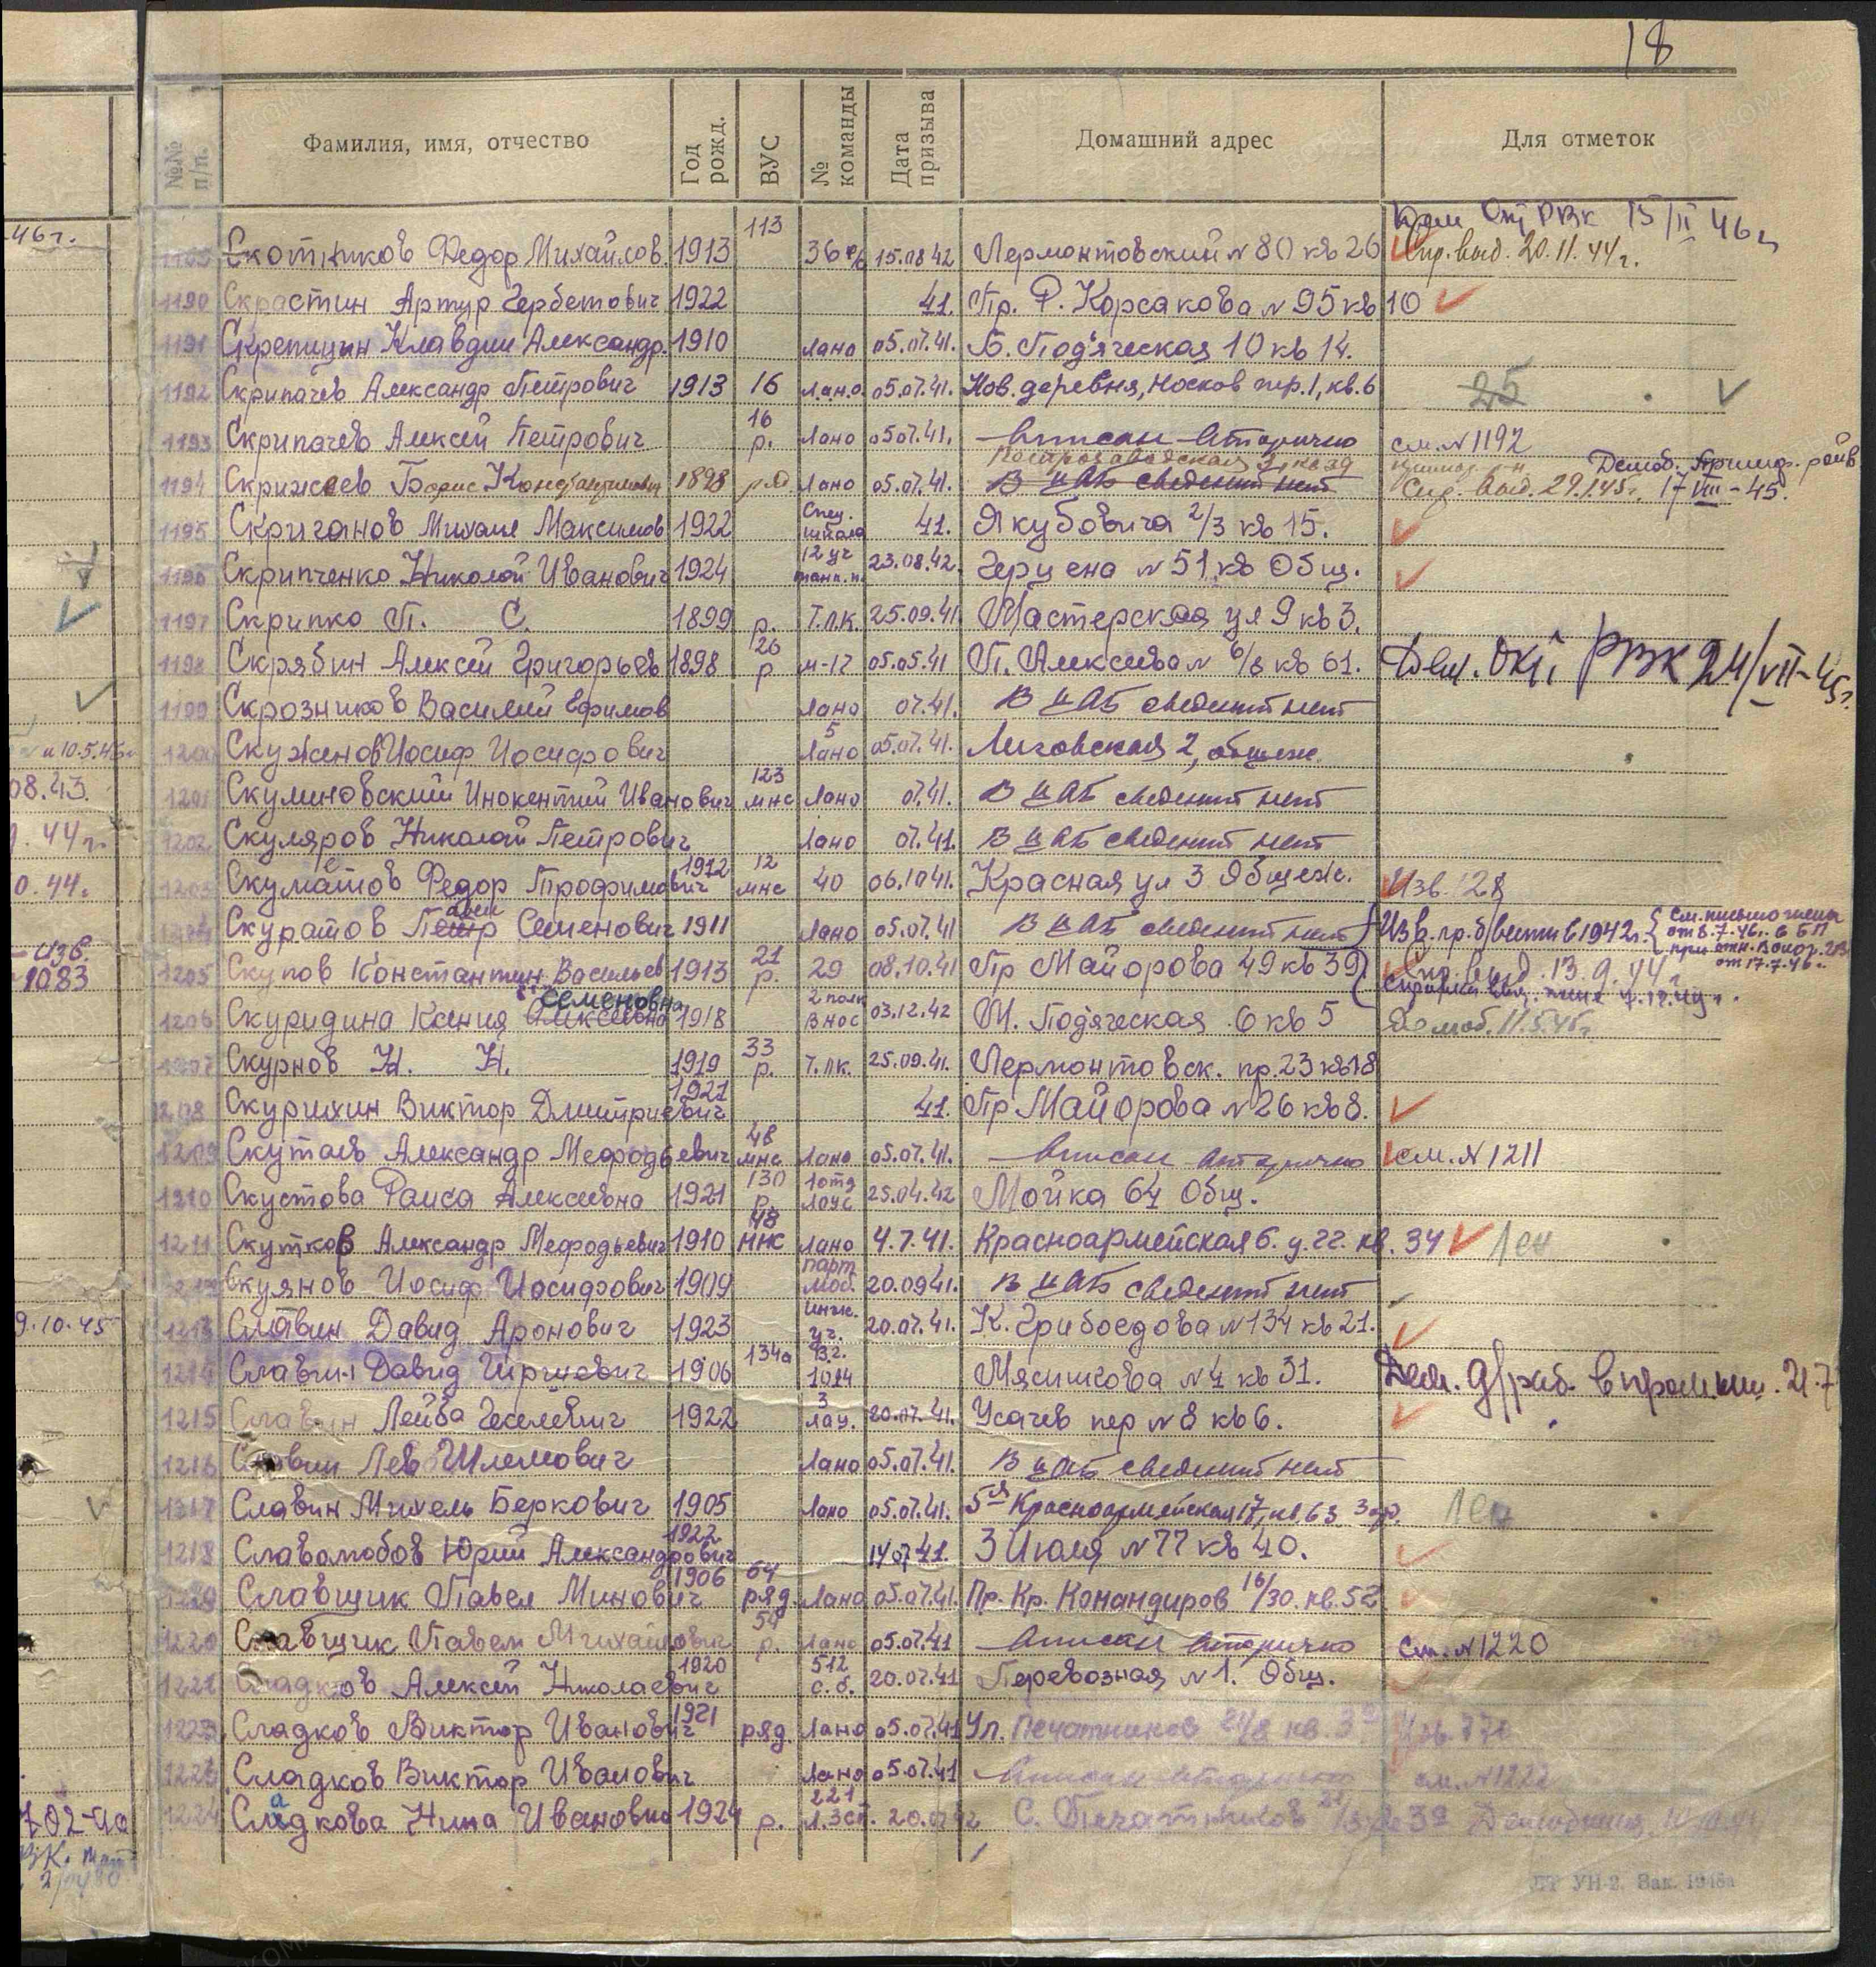 18
№№ п/п. Фамилия, имя, отчество Год рожд. ВУС № команды Дата призыва Домашний адрес Для отметок
46 г.
113 РВК 15/II 46 г
Скотников Федор Михайлов. 1913 36 15.08.42 Лермонтовский № 80 кв 26 Спр. выд. 20.11.44 г.
1190 Скрастин Артур Гербетович 1922 41. Пр. Р. Корсакова № 95 кв 10
1191 Скрепицын Клавдии Александр. 1910 Лано 05.07.41. Б. Под'яческая 10 кв 14.
1192 Скрипачев Александр Петрович 1913 16 Лано. 05.07.41. Нов. деревня, Носков пер. 1, кв. 6 25
1193 Скрипачев Алексей Петрович 16 р. Лано 05.07.41. Вписан вторично см. № 1192
1194 Скрижеев Борис Константинович 1898 ряд Лано 05.07.41. В ЦАБ сведений нет Спр. выд. 29.1.45 г. Демоб. 17 VIII-45.
1195 Скриганов Михаил Максимов 1922 Спец. школа 41. Якубовича 2/3 кв 15.
1196 Скрипченко Николай Иванович 1924 12 уч танк. п. 23.08.42. Герцена № 51 кв Общ.
1197 Скрипко П. С. 1899 р. Т.П.К. 25.09.41 Мастерская ул 9 кв 3.
1198 Скрябин Алексей Григорьев 1898 26 р м-17 05.05.41 П. Алексеева № 6/8 кв 61. Дем. Окт. РВК 24/VII-45 г.
1199 Скрозников Василий Ефимов Лано 07.41. В ЦАБ сведений нет
1200 Скуженов Иосиф Иосифович 5 Лано 05.07.41. Лиговская 2, общеж.
и 10.5.45 г
1201 Скулиновский Инокентий Иванович 123 мнс Лано 07.41. В ЦАБ сведений нет
08.43.
1202 Скуляров Николай Петрович Лано 07.41. В ЦАБ сведений нет
44 г.
1203 Скуматов Федор Трофимович 1912 12 мнс 40 06.10.41. Красная ул 3 Общеж. Изв. 128
0.44 г.
1204 Скуратов Петр авел Семенович 1911 Лано 05.07.41 В ЦАБ сведений нет Изв. пр. б/вести в 1942 г. См. письмо жены от 8.7.46 г. в БП
от 17.7.46 г.
изв.
1083
1205 Скупов Константин Васильев 1913 21 р. 29 08.10.41 Пр Майорова 49 кв 39 Спр. выд. 13.9.44 г
1206 Скуридина Ксения Алексеевна Семеновна 1918 2 полк ВНОС 03.12.42 М. Под'яческая 6 кв 5 Демоб. 11.5.45 г.
1207 Скурнов Н. Н. 1919 33 р. Т.ПК. 25.09.41. Лермонтовск. пр. 23 кв 18
1208 Скурихин Виктор Дмитриевич 1921 41. Пр Майорова № 26 кв 8.
1209 Скутаев Александр Мефодьевич 48 мнс Лано 05.07.41. Вписан вторично см. № 1211
1210 Скустова Раиса Алексеевна 1921 130 р. 1 отд ЛОУС 25.04.42 Мойка 64 Общ.
1211 Скутков Александр Мефодьевич 1910 48 мнс Лано 4.7.41. Красноармейская 6. д. 22. кв. 34 Лен
1212 Скуянов Иосиф Иосифович 1909 парт моб. 20.09.41. В ЦАБ сведений нет
1213 Славин Давид Аронович 1923 инж. уч. 20.07.41. К. Грибоедова № 134 кв 21.
9.10.45
1214 Славин Давид Гиршевич 1906 134а В.г. 1014 Мясникова № 4 кв 31. Дем. д/раб. в промыш. 21.7
1215 Славин Лейба Геселевич 1922 3 лау. 20.07.41. Усачев пер № 8 кв 6.
1216 Славин Лев Шлемович Лано 05.07.41. В ЦАБ сведений нет
1217 Славин Михель Беркович 1905 Лано 05.07.41. 5я Красноармейская 17, кв 63 Лен
1218 Славолюбов Юрий Александрович 1922 14 07 41. 3 Июля № 77 кв 40.
1219 Славщик Павел Минович 1906 64 ряд. Лано 05.07.41. Пр. Кр. Командиров 16/30. кв. 52
1220 Славщик Павел Михайлович 54 р. Лано 05.07.41 Вписан вторично см. № 1220
1221 Сладков Алексей Николаевич 1920 512 с.б. 20.07.41 Перевозная № 1. Общ.
1222 Сладков Виктор Иванович 1921 ряд. Лано 05.07.41 Ул. Печатников кв. 39
1223 Сладков Виктор Иванович Лано 05.07.41 Вписан вторично см. № 1222
1224 Сладкова Нина Ивановна 1924 р. 221 20.07.42 С. Печатников
ЛТ УН-2. Зак. 1948а